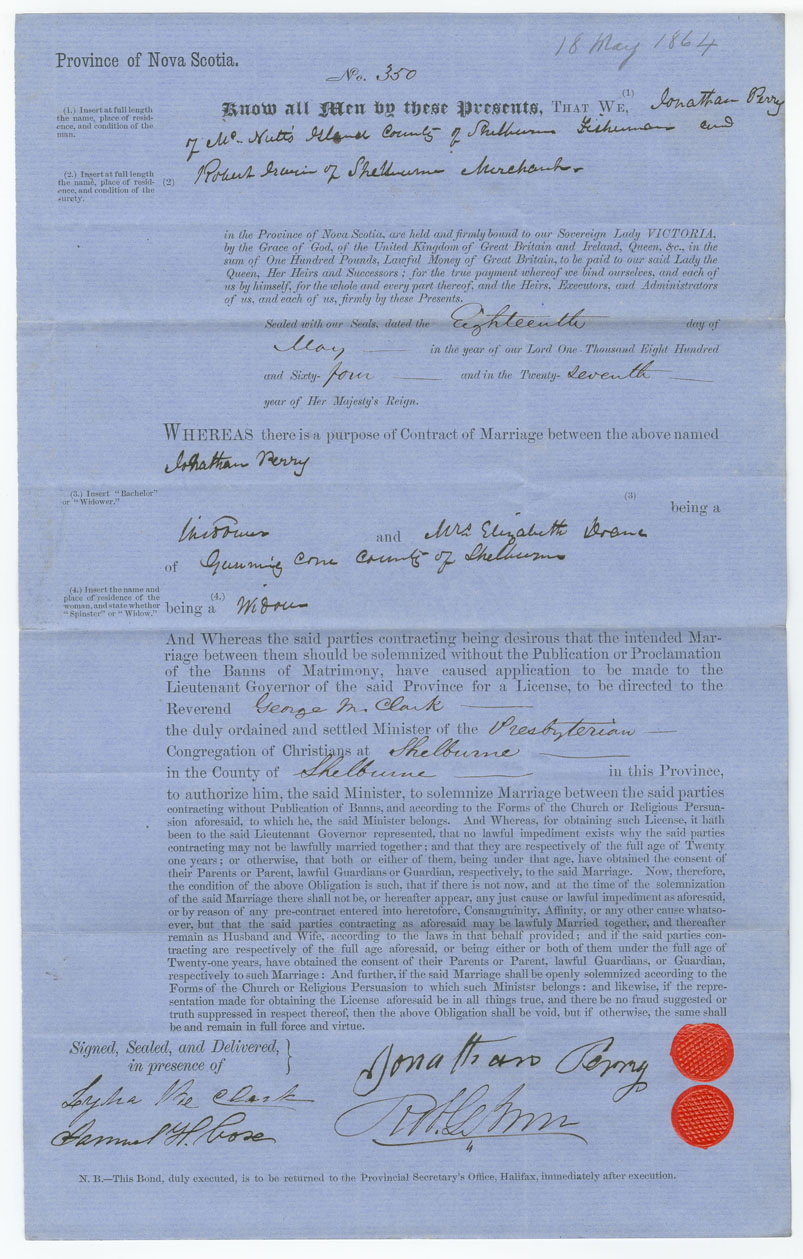 18 May 1864
Province of Nova Scotia.
No. 350
(1.) Insert at full length
the name, place of resid-
ence, and condition of the
man.
Know all Men by these Presents, THAT WE, (1) Jonathan Perry
of Mc Nutts Island County of Shelburne Fisherman and
(2.) Insert at full length
the name, place of resid-
ence, and condition of the
surety.
(2) Robert Irwin of Shelburne Merchant
in the Province of Nova Scotia, are held and firmly bound to our Sovereign Lady VICTORIA,
by the Grace of God, of the United Kingdom of Great Britain and Ireland, Queen, &c., in the
sum of One Hundred Pounds, Lawful Money of Great Britain, to be paid to our said Lady the
Queen, Her Heirs and Successors; for the true payment whereof we bind ourselves, and each of
us by himself, for the whole and every part thereof, and the Heirs, Executors, and Administrators
of us, and each of us, firmly by these Presents.
Sealed with our Seals, dated the Eighteenth day of
May in the year of our Lord One Thousand Eight Hundred
and Sixty- four and in the Twenty- seventh
year of Her Majesty's Reign.
WHEREAS there is a purpose of Contract of Marriage between the above named
Jonathan Perry
(3.) Insert "Bachelor"
or "Widower."
(3)
being a
Widower and Mrs Elizabeth Doane
of Gunning Cove County of Shelburne
(4.) Insert the name and
place of residence of the
woman, and state whether
"Spinster" or "Widow."
being a (4.) Widow
And Whereas the said parties contracting being desirous that the intended Mar-
riage between them should be solemnized without the Publication or Proclamation
of the Banns of Matrimony, have caused application to be made to the
Lieutenant Governor of the said Province for a License, to be directed to the
Reverend George M. Clark
the duly ordained and settled Minister of the Presbyterian
Congregation of Christians at Shelburne
in the County of Shelburne in this Province,
to authorize him, the said Minister, to solemnize Marriage between the said parties
contracting without Publication of Banns, and according to the Forms of the Church or Religious Persua-
sion aforesaid, to which he, the said Minister belongs. And Whereas, for obtaining such License, it hath
been to the said Lieutenant Governor represented, that no lawful impediment exists why the said parties
contracting may not be lawfully married together; and that they are respectively of the full age of Twenty
one years; or otherwise, that both or either of them, being under that age, have obtained the consent of
their Parents or Parent, lawful Guardians or Guardian, respectively, to the said Marriage. Now, therefore,
the condition of the above Obligation is such, that if there is not now, and at the time of the solemnization
of the said Marriage there shall not be, or hereafter appear, any just cause or lawful impediment as aforesaid,
or by reason of any pre-contract entered into heretofore, Consanguinity, Affinity, or any other cause whatso-
ever, but that the said parties contracting as aforesaid may be lawfuly Married together, and thereafter
remain as Husband and Wife, according to the laws in that behalf provided; and if the said parties con-
tracting are respectively of the full age aforesaid, or being either or both of them under the full age of
Twenty-one years, have obtained the consent of their Parents or Parent, lawful Guardians, or Guardian,
respectively to such Marriage: And further, if the said Marriage shall be openly solemnized according to the
Forms of the Church or Religious Persuasion to which such Minister belongs: and likewise, if the repre-
sentation made for obtaining the License aforesaid be in all things true, and there be no fraud suggested or
truth suppressed in respect thereof, then the above Obligation shall be void, but if otherwise, the same shall
be and remain in full force and virtue.
Signed, Sealed, and Delivered,
in presence of
Jonathan Perry
Clark
Samuel H. Cox
Robt. Irwin
N. B.—This Bond, duly executed, is to be returned to the Provincial Secretary's Office, Halifax, immediately after execution.